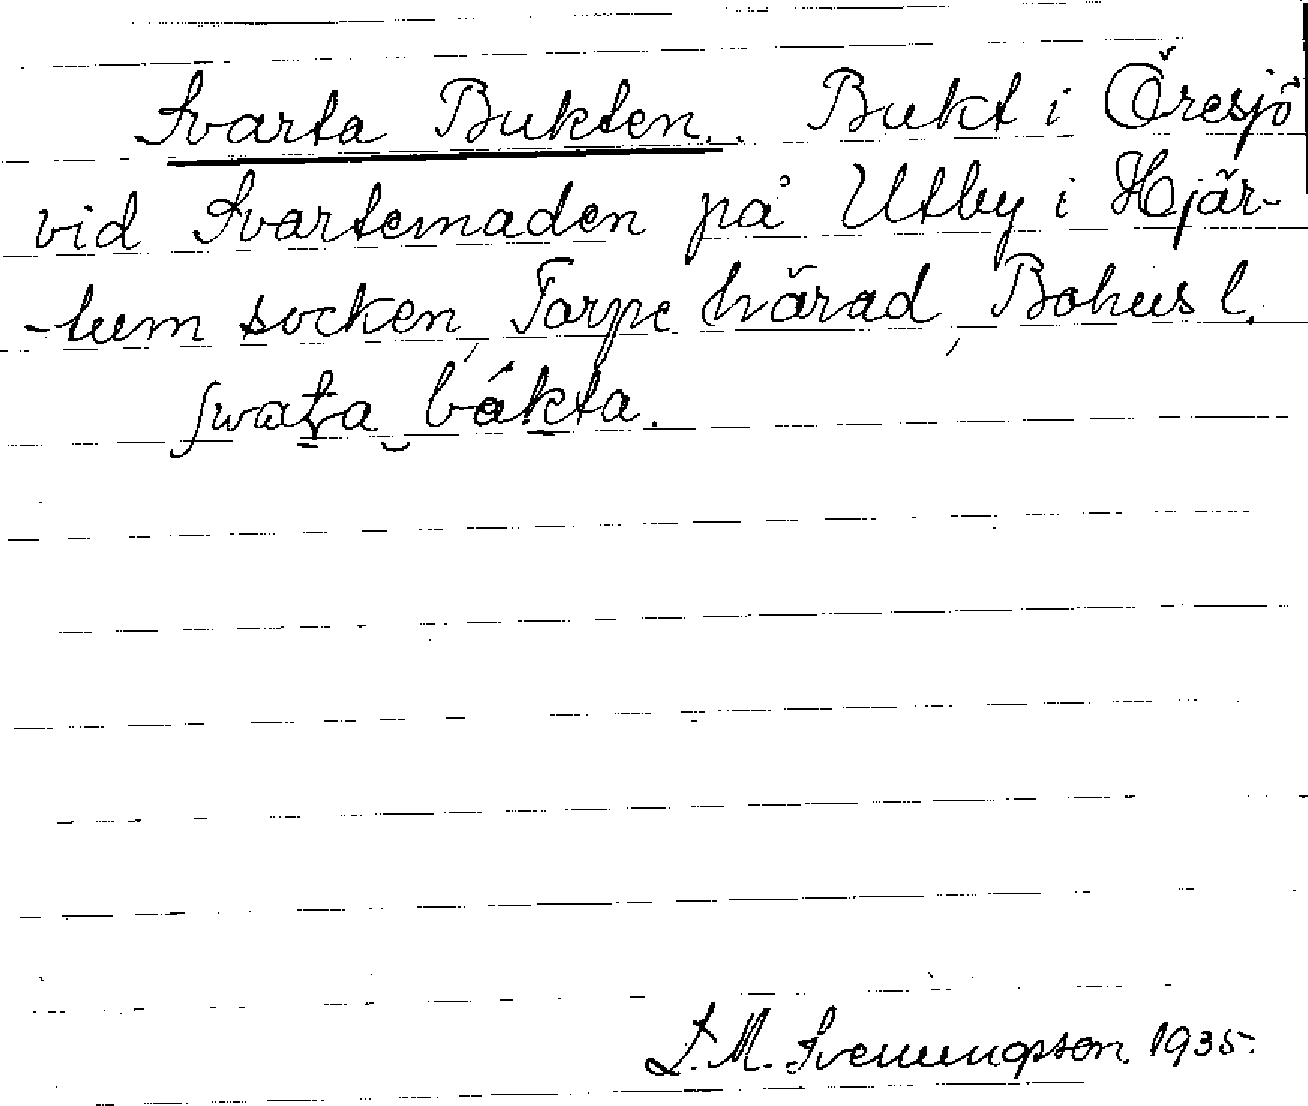 Svarta Bukten. Bukt i Öresjö
vid Svartemaden på Utby i Hjär-
-tum socken, Torpe härad, Bohusl.
swaṯa bákta.
S. M. Svenungsson 1935.